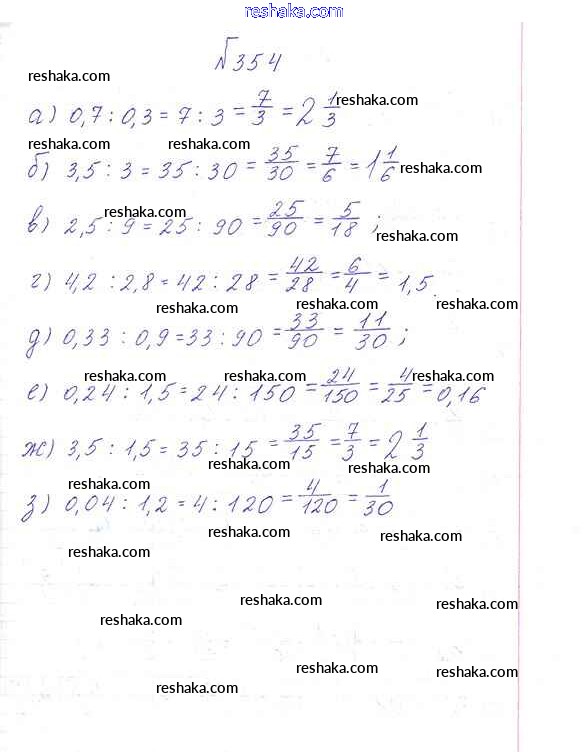 reshaka.com
№354
reshaka.com
а) 0,7 : 0,3 = 7 : 3 = 7/3 = 2 1/3 reshaka.com
reshaka.com reshaka.com
б) 3,5 : 3 = 35 : 30 = 35/30 = 7/6 = 1 1/6 reshaka.com
reshaka.com
в) 2,5 : 9 = 25 : 90 = 25/90 = 5/18 ;
reshaka.com
г) 4,2 : 2,8 = 42 : 28 = 42/28 = 6/4 = 1,5
reshaka.com reshaka.com reshaka.com
д) 0,33 : 0,9 = 33 : 90 = 33/90 = 11/30 ;
reshaka.com reshaka.com reshaka.com
е) 0,24 : 1,5 = 24 : 150 = 24/150 = 4/25 = 0,16
ж) 3,5 : 1,5 = 35 : 15 = 35/15 = 7/3 = 2 1/3
reshaka.com reshaka.com
reshaka.com
з) 0,04 : 1,2 = 4 : 120 = 4/120 = 1/30
reshaka.com reshaka.com
reshaka.com
reshaka.com reshaka.com
reshaka.com
reshaka.com reshaka.com
reshaka.com